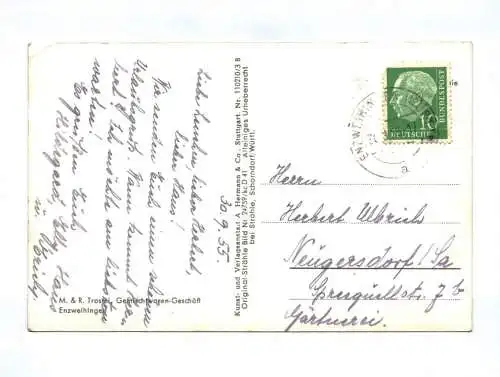 30.9.55
Liebe Tanten, lieber Herbert
lieber Hans!
Wir senden Euch einen schönen
Urlaubsgruß. Wann kommt Ihr
hierl? Ich möchte am liebsten
warten!
Es grüßen Euch
Hildegard, Elly, Hans
u. Erich
M. & R. Trostel, Gemischtwaren-Geschäft
Enzweihingen
Kunst- und Verlagsanstalt J. A. Hartmann & Co. Stuttgart. Nr. 11020/3 B
Original Strähle Bild Nr. Alleiniges Urheberrecht
bei Strähle, Schorndorf/Württ.
DEUTSCHE
BUNDESPOST
10
a
Herrn
Herbert Ulbrich
Neugersdorf/Sa
Spreequellstr. 7b
Gärtnerei.